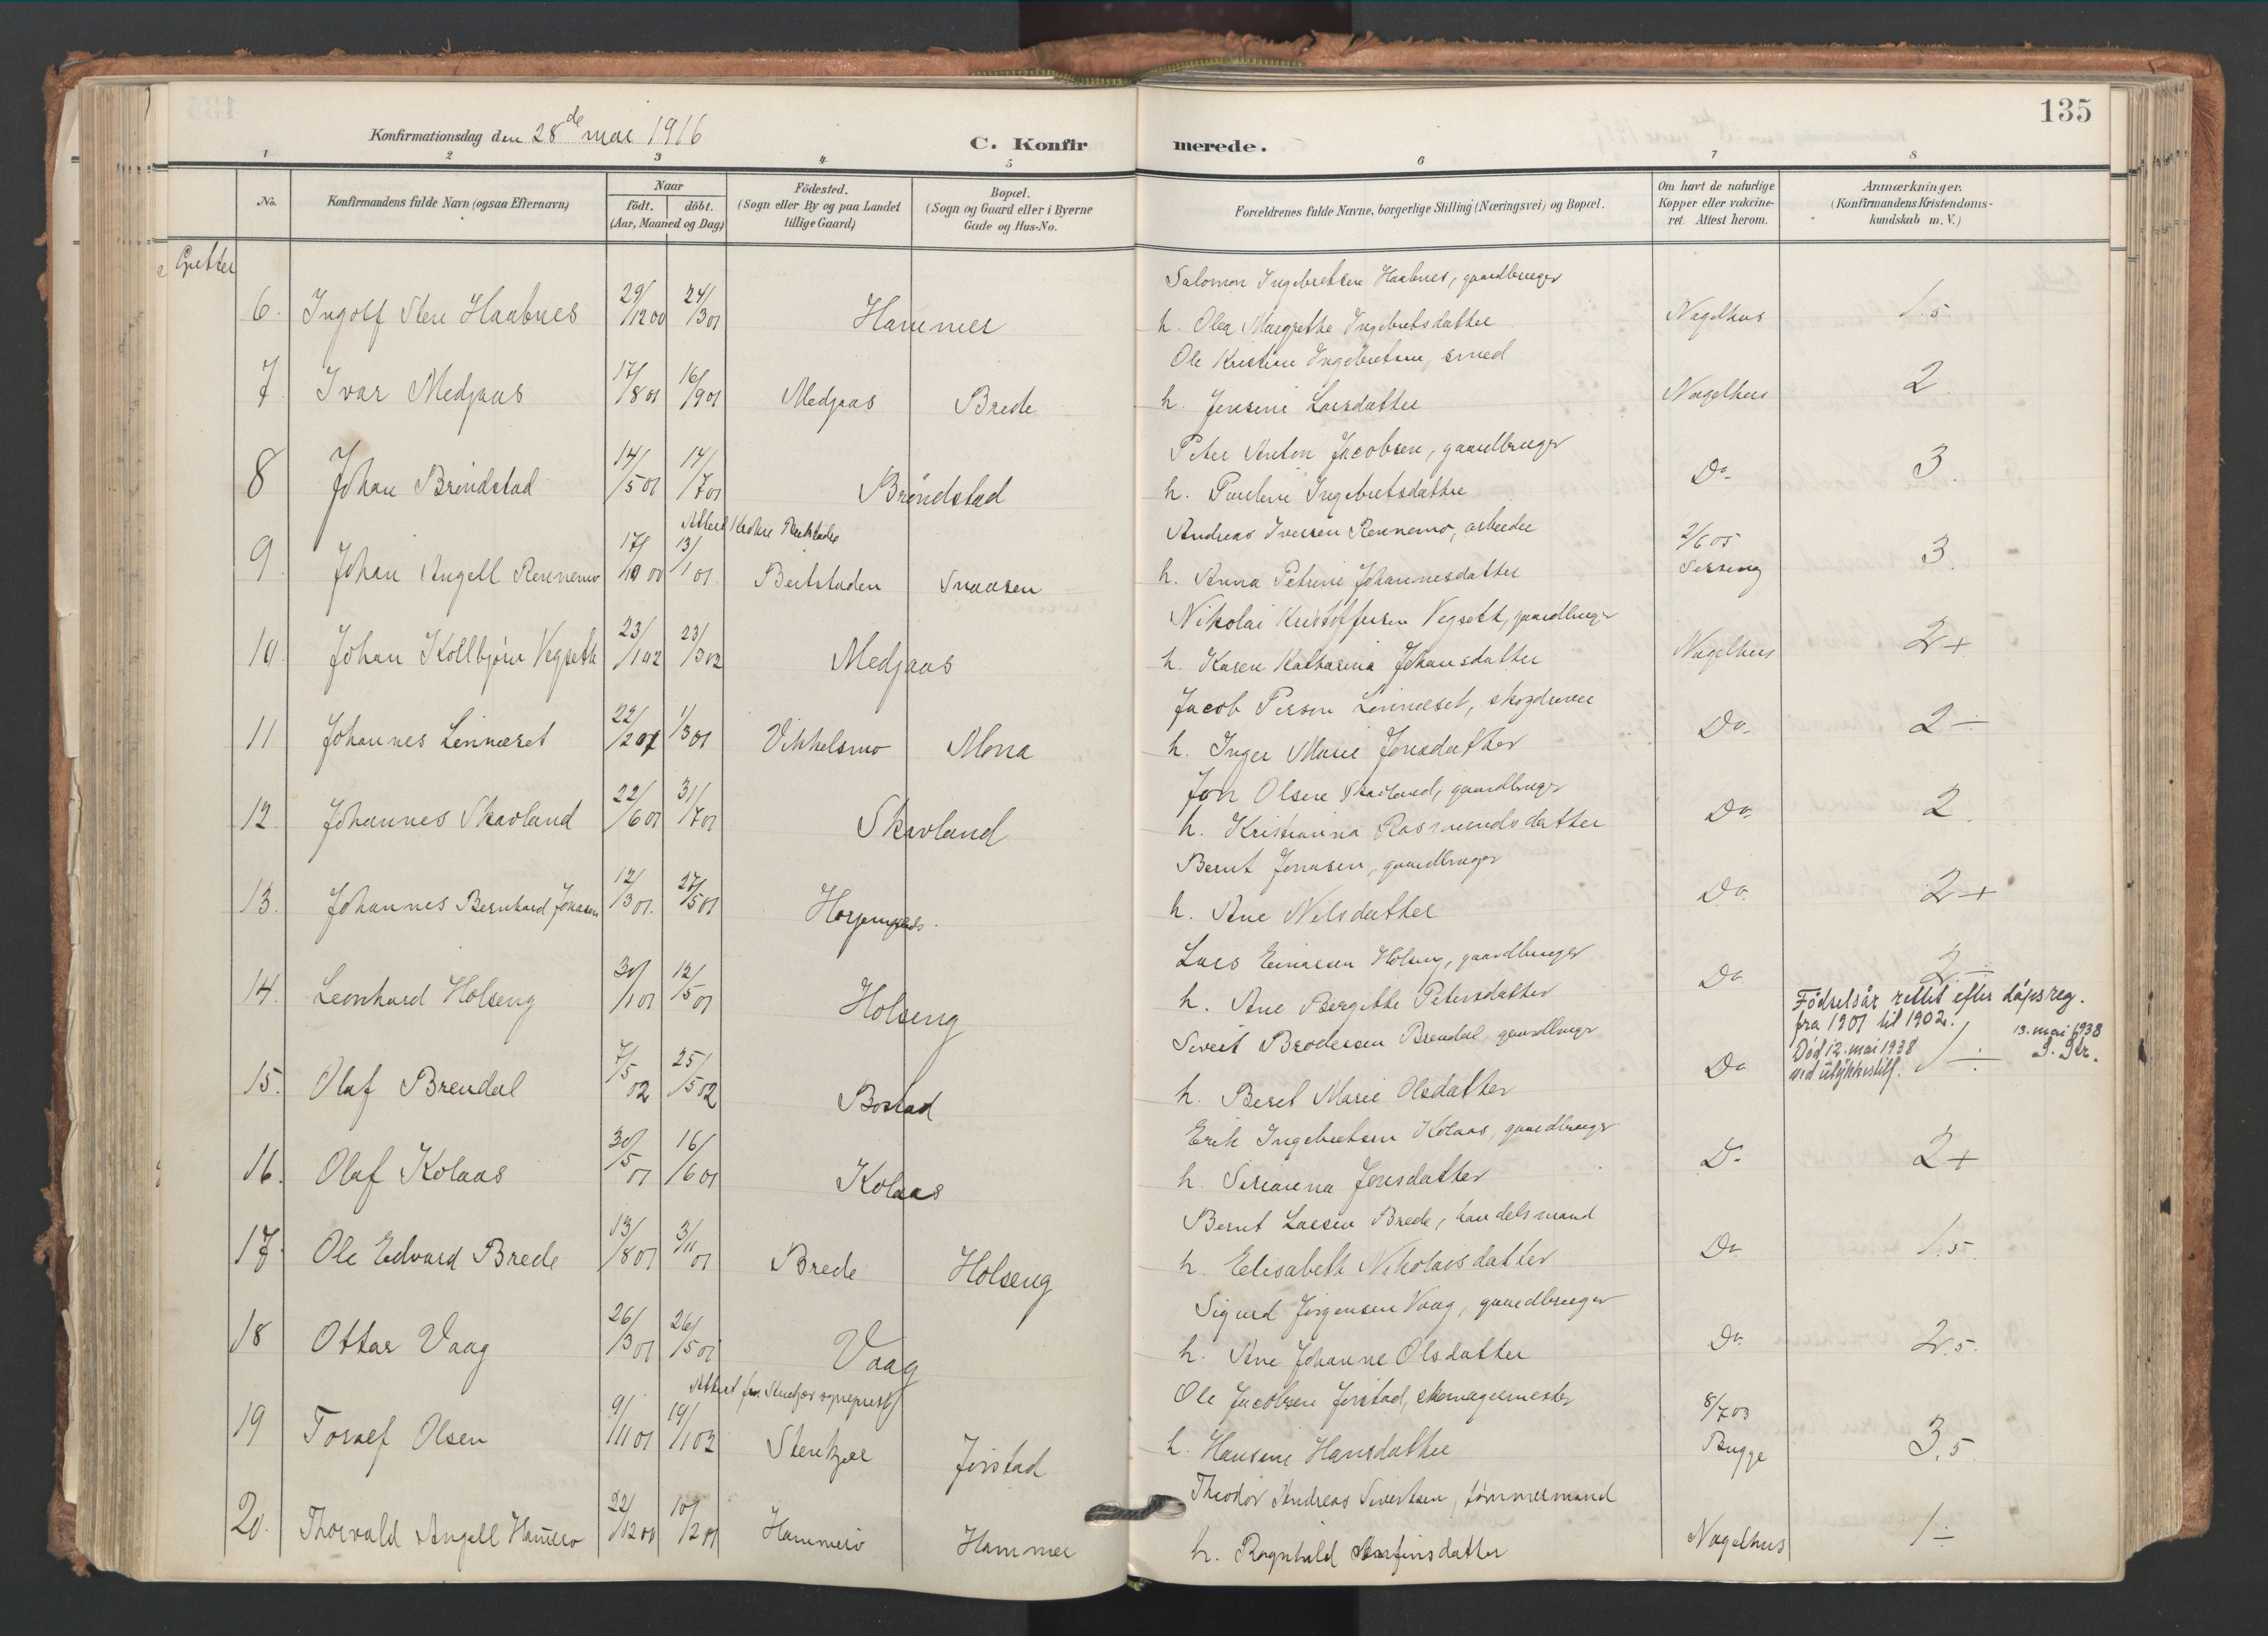 135
Konfirmationsdag den 28de mai 1916
C. Konfirmerede.
1 2 3 4 5 6 7 8
No.
Konfirmandens fulde Navn (ogsaa Efternavn)
Naar
födt. döbt.
(Aar, Maaned og Dag)
Födested.
(Sogn eller By og paa Landet
tillige Gaard)
Bopæl.
(Sogn og Gaard eller i Byerne
Gade og Hus-No.
Forældrenes fulde Navne, borgerlige Stilling (Næringsvei) og Bopæl.
Om havt de naturlige
Kopper eller vakcine-
ret. Attest herom.
Anmærkninger.
(Konfirmandens Kristendoms-
kundskab m. V.)
Gutter
Salomon Ingebretsen Haabnes, gaardbruger
6. Ingolf Sten Haabnes 29/12 00 24/3 01 Hammer h. Olea Margrethe Ingebretsdatter Nagelhus 1.5
Ole Kristian Ingebretsen, smed
7. Ivar Medjaas 17/8 01 16/9 01 Medjaas Brede h. Jensine Larsdatter Nagelhus 2
Peter Anton Jacobsen, gaardbruger
8 Johan Bröndstad 14/5 01 14/7 01 Bröndstad h. Pauline Ingebretsdatter Do 3.
Andreas Iversen Rennemo, arbeider
9. Johan Angell Rennemo 17/10 00 13/1 01. Beitstaden Snaasen h. Anna Petrine Johannesdatter 2/6 05 3.
Nikolai Kristoffersen Vegseth, gaardbruger
10. Johan Kollbjørn Vegseth 23/1 02 23/3 02 Medjaas h. Karen Katharina Johansdatter Nagelhus 2+
Jacob Person Linnæset, skogdriver
11 Johannes Linnæset 22/2 01 1/3 01 Vikkelsmo Mona h. Inger Marie Jonsdatter Do. 2÷
Jon Olsen Skavland, gaardbruger
12. Johannes Skavland 22/6 01 31/7 01 Skavland h. Kristianna Rasmundsdatter Do. 2.
Bernt Jonasen, gaardbruger
13. Johannes Bernhard Jonasen 12/3 01. 27/5 01 h. Ane Nilsdatter Do. 2+
Lars Einarsen Holseng, gaardbruger
14. Leonhard Holseng 30/1 01 12/5 01 Holseng h. Ane Bergitte Petersdatter Do. 2÷
Födselsår rettet efter dåpsreg.
fra 1901 til 1902. 13. mai 1938
Sivert Brodersen Brendal, gaardbruger
Död 12. mai 1938 S. Str.
ved ulykkestilf.
15. Olaf Brendal 7/5 02 25/5 02 Bostad h. Beret Marie Olsdatter Do 1÷
Erik Ingebretsen Kolaas, gaardbruger
16. Olaf Kolaas 30/5 01 16/6 01 Kolaas h. Sirianna Jonsdatter Do 2+
Bernt Larsen Brede, handelsmand
17. Ole Edvard Brede 13/8 01 3/11 01 Brede Holseng h. Elisabeth Nikolaisdatter Do. 1.5.
Sigurd Jörgensen Vaag, gaardbruger
18 Ottar Vaag 26/3 01 26/5 01 Vaag h. Ane Johanne Olsdatter Do. 2.5.
Attest fra Stenkjær sogneprest
Ole Jacobsen Jørstad, skomagermester
19 Toralf Olsen 9/11 01 19/1 02 Stenkjær Jørstad h. Hansine Hansdatter 8/7 03 Bugge 3.5
Theodor Andreas Sivertsen, tømmermand
20. Thorvald Angell Hammer 22/12 00 10/2 01 Hammer Hammer h. Ragnhild Arnfinsdatter Nagelhus 1÷